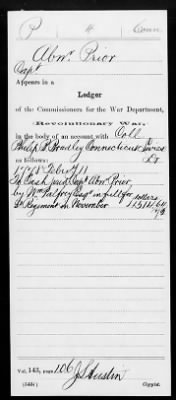 P H Conn.
Abnr. Prior
Capt
Appears in a
Ledger
of the Commissioners for the War Department,
Revolutionary War,
in the body of an account with Coll
Philip B Bradley Connecticut
Dr
as follows:
1778 Feby 11
To Cash paid Capt Abnr. Prior
by Wm Palfrey Esqr in full for
Regiment in November dollars
Vol. 143, page 106
J S Austin
Copyist.